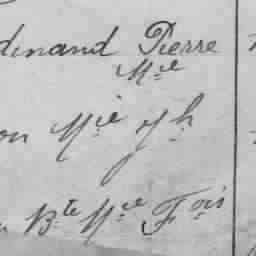 dinand Pierre
Mce
on Mie Jh
Bte Mce Fois